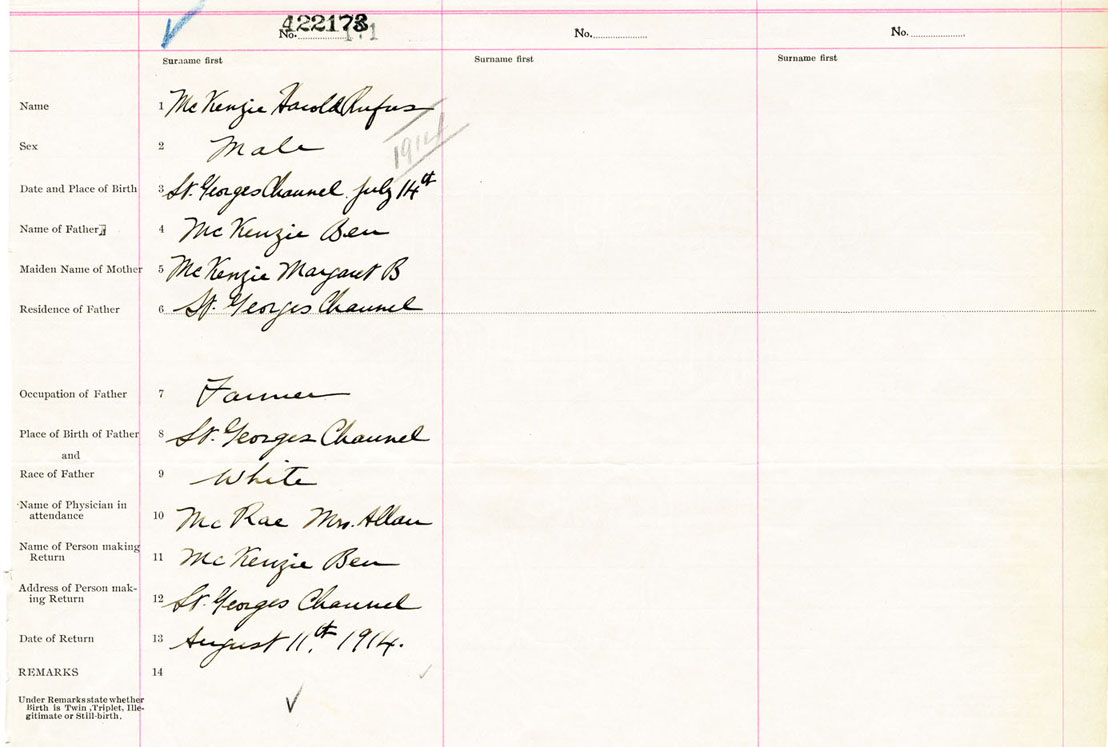 422173
No. No. No.
Surname first Surname first Surname first
Name 1 McKenzie Harold Rufus
Sex 2 Male 1914
Date and Place of Birth 3 St. Georges Channel July 14th
Name of Father 4 McKenzie Ben
Maiden Name of Mother 5 McKenzie Margaret B
Residence of Father 6 St. Georges Channel
Occupation of Father 7 Farmer
Place of Birth of Father 8 St. Georges Channel
and
Race of Father 9 White
Name of Physician in
attendance 10 McRae Mrs. Allan
Name of Person making
Return 11 McKenzie Ben
Address of Person mak-
ing Return 12 St. Georges Channel
Date of Return 13 August 11th, 1914.
REMARKS 14
Under Remarks state whether
Birth is Twin, Triplet, Ille-
gitimate or Still-birth.